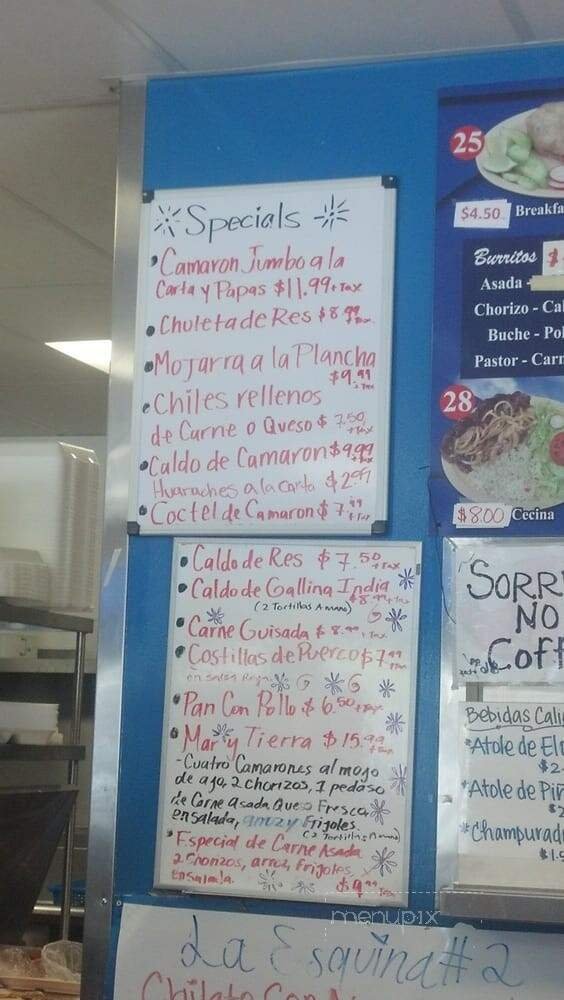 Specials
Camaron Jumbo a la
Carta y Papas $11.99 + Tax
Chuleta de Res $8.99 + Tax
Mojarra a la Plancha
$9.99 + Tax
Chiles rellenos
de Carne o Queso $7.50 + Tax
Caldo de Camaron $9.99 + Tax
Huaraches a la Carta $2.99
Coctel de Camaron $7.99 + Tax
Caldo de Res $7.50 + Tax
Caldo de Gallina India
(2 Tortillas A mano) $8.99 + Tax
Carne Guisada $8.99 + Tax
Costillas de Puerco $7.99 + Tax
en salsa Roja
Pan Con Pollo $6.50 + Tax
Mar y Tierra $15.99 + Tax
-Cuatro Camarones al mojo
de ajo, 2 chorizos, 1 pedaso
de Carne asada Queso Fresco,
ensalada, arroz y Frijoles.
(2 Tortillas A mano)
Especial de Carne Asada
2 chorizos, arroz, Frijoles,
ensalada. $9.99 + Tax
La Esquina #2
25
$4.50 Breakfa
Burritos $
Asada
Chorizo - Ca
Buche - Po
Pastor - Carn
28
$8.00 Cecina
SORR
NO
Coff
Bebidas Cali
*Atole de El
$2
*Atole de Piñ
$2
*Champurad
$1.5
menupix